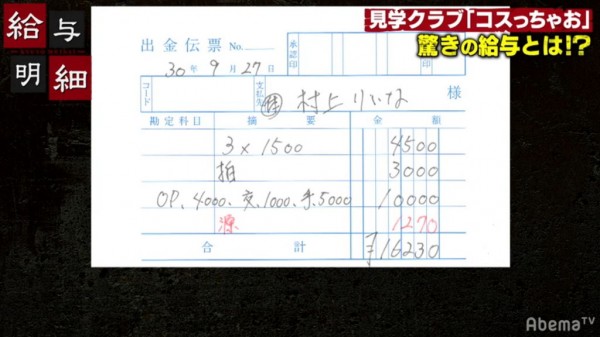 給与
明細
見学クラブ「コスっちゃお」
驚きの給与とは!?
出金伝票 No.
承認印
30年 9月 27日
コード
支払先
村上りいな 様
勘定科目 摘要 金額
3 × 1500 4500
拍 3000
OP、4000、交、1000、手、5000 10000
源 1270
合計 ¥16230
AbemaTV